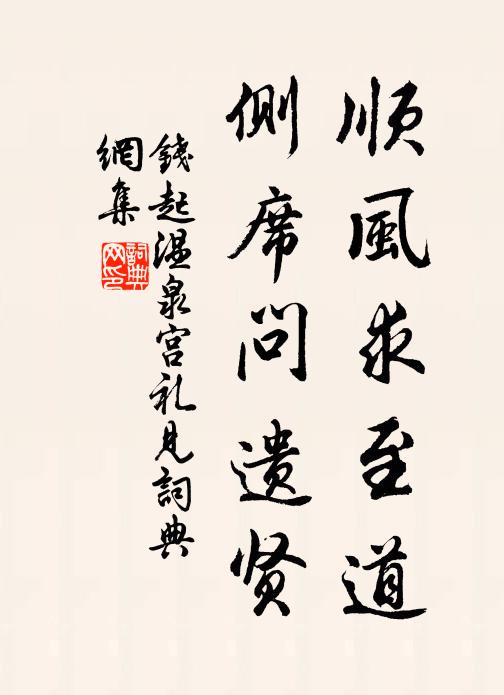 順風求至道
側席問遺贤
錢起温泉宫礼見詞典
網集
詞典
网印